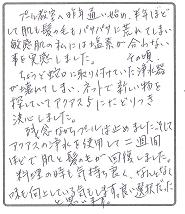 プール教室へ昨年通い始め、半年ほど
して肌も髪の毛もパサパサに荒れてしまい
敏感肌の私には塩素が合わない
事を実感しました。その頃、
ちょうど蛇口に取り付けていた浄水器
が壊れてしまい、ネットで新しい物を
探していてアクアスにたどりつき
決心しました。
残念ながらプールは止めました。そして
アクアスの浄水を使用して二週間
ほどで肌も髪の毛が回復しました。
料理の時も気持ち良く、なんとなく
味も何という気もします。良い選択だった
と思います。